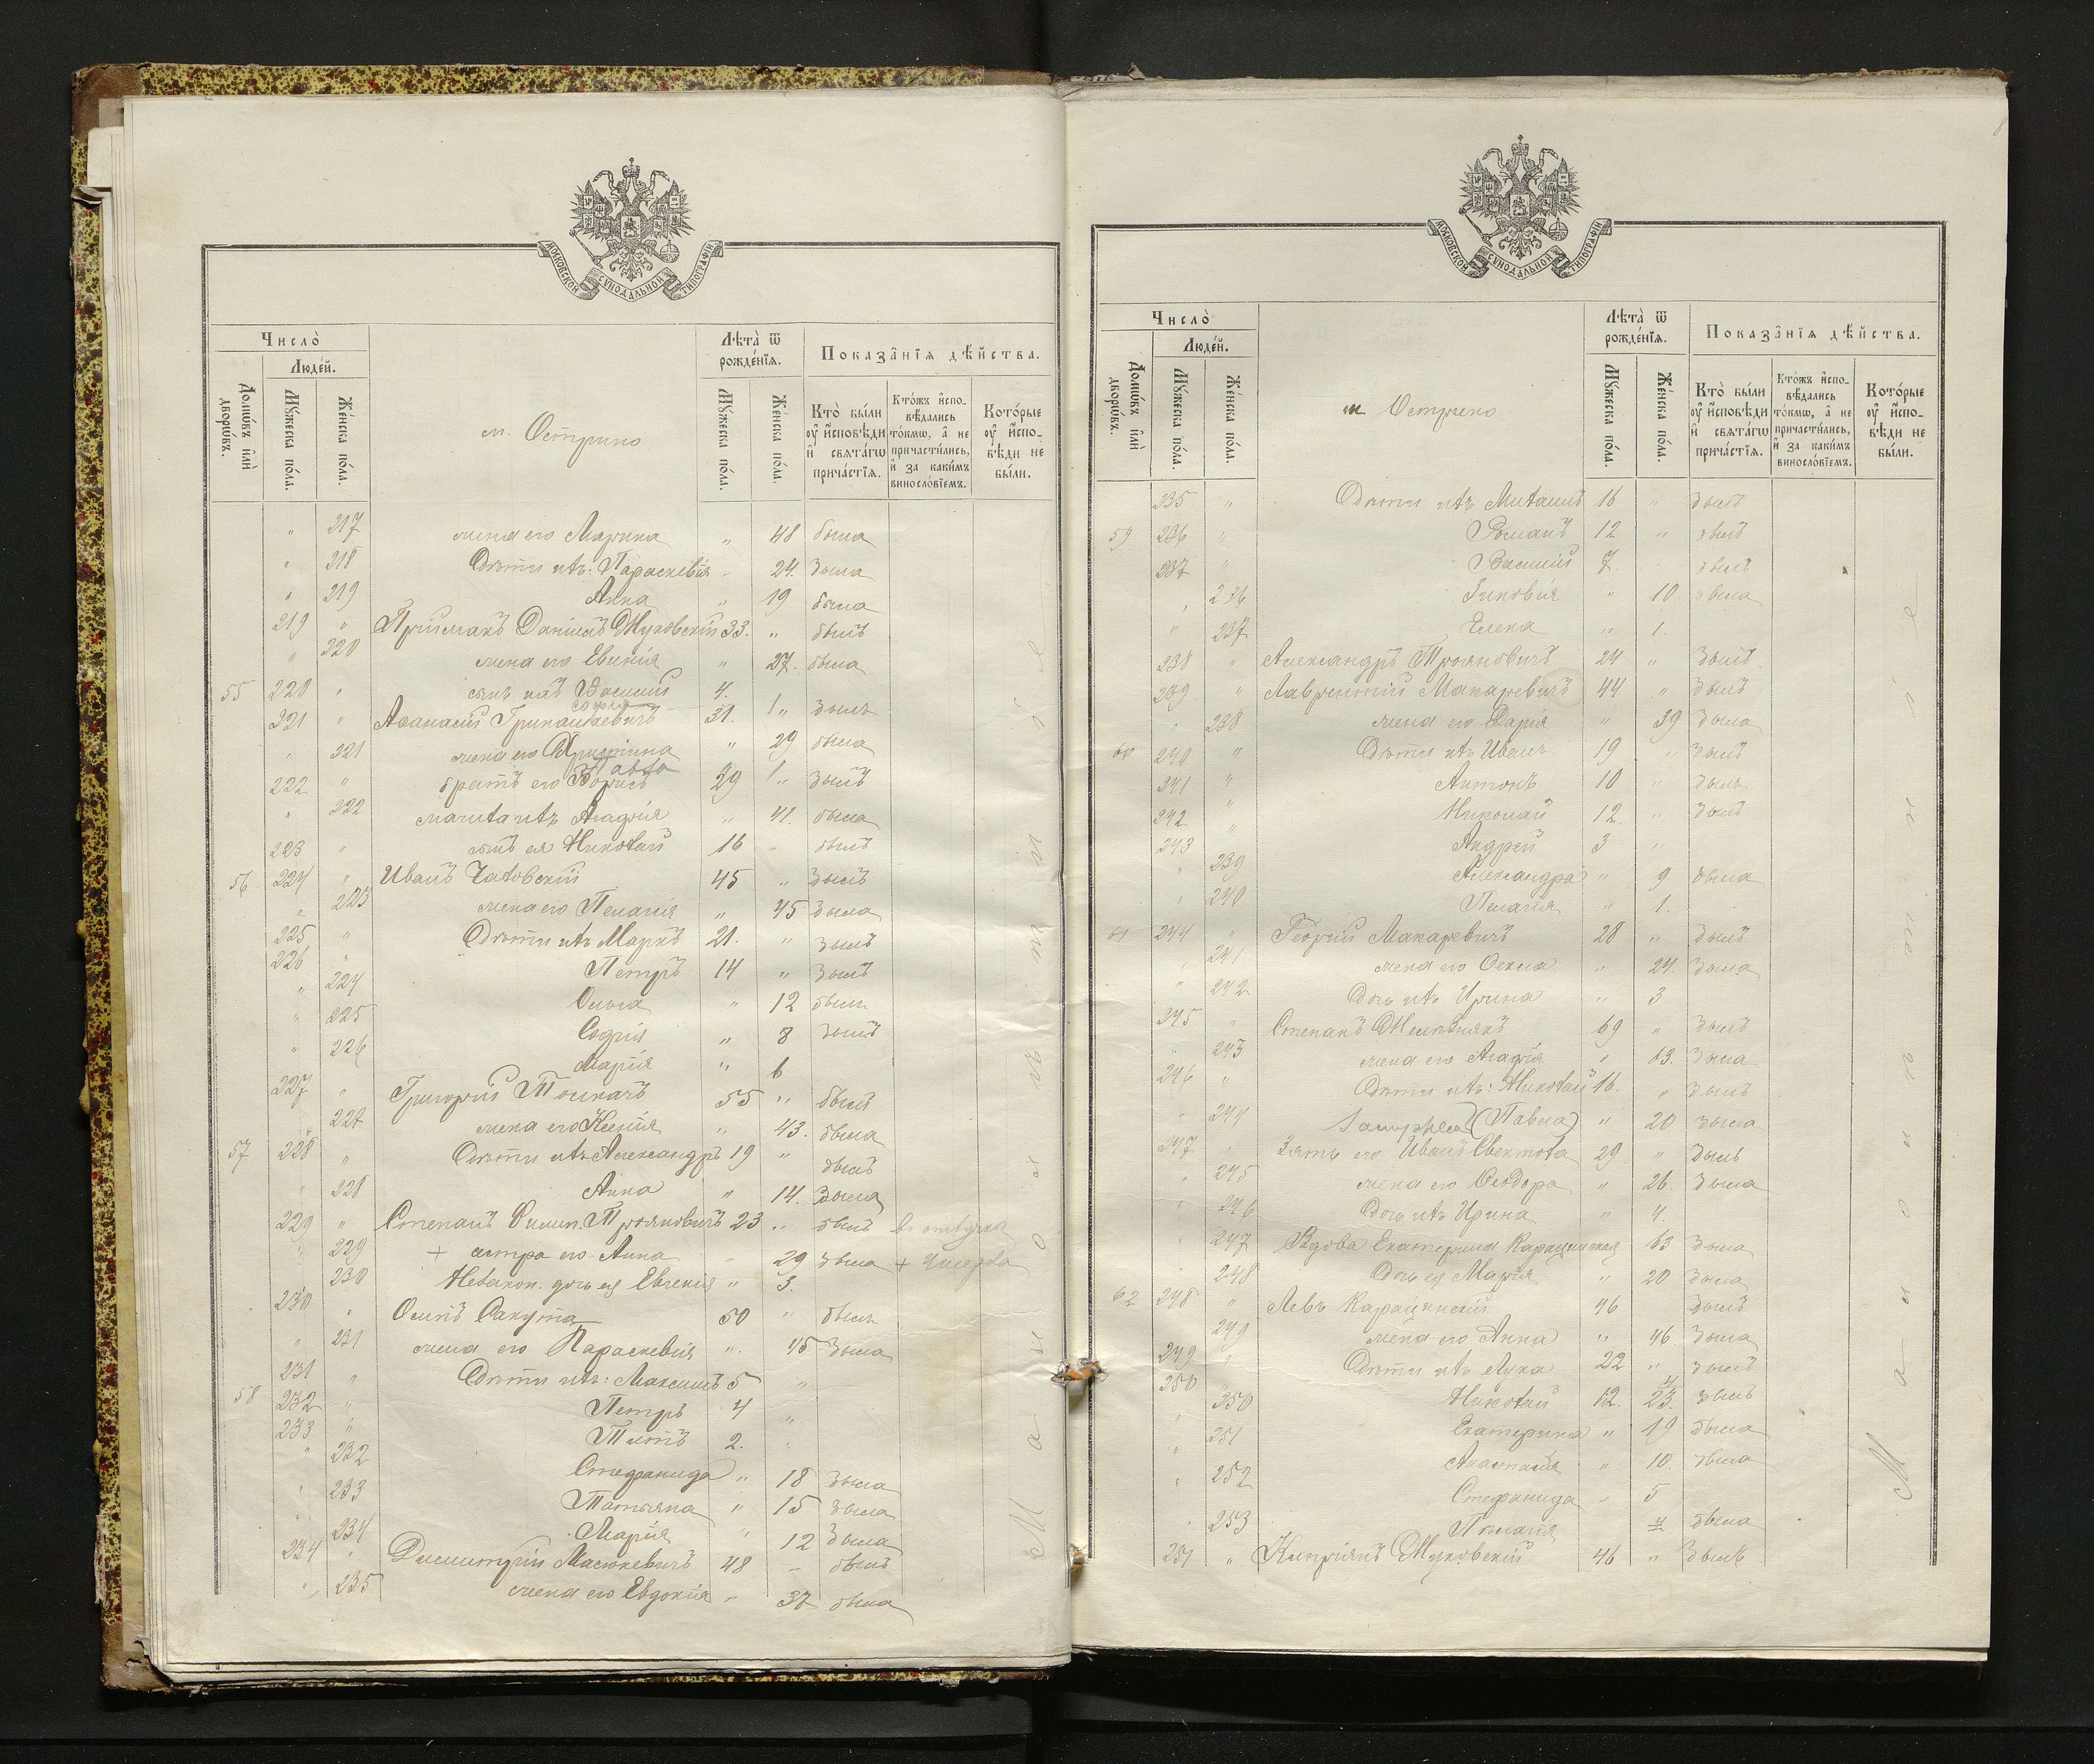 МОСКОВСКОЙ СѴНОДАЛЬНОЙ ТИПОГРАФІИ
Число̀
Людéй.
Домѡвъ и҆лѝ дворѡвъ.
Мꙋ́жеска по́ла.
Же́нска по́ла.
м. Острино
Лѣта̀ ѿ рожде́нїѧ.
Мꙋ́жеска по́ла.
Же́нска по́ла.
Показа̑нїѧ дѣ́йства.
Кто̀ бы́ли ᲂу҆ и҆сповѣ́ди и҆ свѧта́гѡ прича́стїѧ.
Кто́жъ и҆сповѣ́дались то́кмѡ, а҆ не причасти́лись, и҆ за каки́мъ винослов́їемъ.
Кото́рые ᲂу҆ и҆сповѣ́ди не бы́ли.
" 217 жена его Марина " 48 была
" 218 Дѣти ихъ: Параскевія " 24. была
" 219 Анна " 19 была
219 " Приймакъ Даніилъ Жуковскій 33. " былъ
" 220 жена его Евгенія " 27. была
55 220 " сынъ ихъ Василій 4.
София
221 " Аѳанасій 31. " былъ
" 221 жена его Христина " 29 была
222 " братъ его Борисъ 29 " былъ
" 222 мачиха ихъ Агафія " 41. была
223 " сынъ ея Николай 16 " былъ
56 224 " Иванъ 45 " былъ
" 223 жена его Пелагія " 45 была
225 " Дѣти ихъ Маркъ 21. " былъ
226 " Петръ 14 " былъ
" 224 Ольга " 12 была
" 225 Софія " 8 былъ
" 226 Марія " 6
227 " Григорій Ткачъ 55 " былъ
" 227 жена его Ксенія " 43. была
57 228 " Дѣти ихъ Александръ 19 " былъ
" 228 Анна " 14. была
229 " Степанъ Филип. Трояновичъ 23 " былъ
" 229 + сестра его Анна " 29 была +
230 Незакон. дочь ея Евгенія " 3.
230 " Осипъ Сакута 50 " былъ
" 231 жена его Параскевія " 45 была
231 " Дѣти ихъ: Максимъ 5 "
58 232 " Петръ 4 "
233 " Титъ 2. "
" 232 Стефанида " 18 была
" 233 Татьяна " 15 была
" 234 Марія " 12 была
234 " Димитрій Масюкевичъ 48 – былъ
" 235 жена его Евдокія " 37 была
МОСКОВСКОЙ СѴНОДАЛЬНОЙ ТИПОГРАФІИ
Число̀
Людéй.
Домѡвъ и҆лѝ дворѡвъ.
Мꙋ́жеска по́ла.
Же́нска по́ла.
м. Острино
Лѣта̀ ѿ рожде́нїѧ.
Мꙋ́жеска по́ла.
Же́нска по́ла.
Показа̑нїѧ дѣ́йства.
Кто̀ бы́ли ᲂу҆ и҆сповѣ́ди и҆ свѧта́гѡ прича́стїѧ.
Кто́жъ и҆сповѣ́дались то́кмѡ, а҆ не причасти́лись, и҆ за каки́мъ винослов́їемъ.
Кото́рые ᲂу҆ и҆сповѣ́ди не бы́ли.
235 " Дѣти ихъ Михаилъ 16 " былъ
59 236 " Романъ 12 " былъ
237 " Василій 7. былъ
" 236 Зиновія " 10 была
" 237 Елена " 1.
238 " Александръ Трояновичъ 24 " былъ
239 " Лаврентій Макаревичъ 44 " былъ
" 238 жена его Дарія " 39 была
60 240 " Дѣти ихъ Иванъ 19 " былъ
241 " Антонъ 10 " былъ
242 " Николай 12. " былъ
243 Андрей 3 "
" 239 Александра " 9 была
" 240 Пелагія " 1.
61 244 " Георгій Макаревичъ 28 " былъ
" 241 жена его Ѳекла " 24. была
" 242 Дочь ихъ Ирина " 3
245 " Степанъ 69 " былъ
" 243 жена его Агафія " 63. была
246 " Дѣти ихъ: Николай 16. " былъ
" 244 (Павла) " 20 была
247 " Зять его Иванъ 29 " былъ
" 245 жена его Ѳеодора " 26. была
" 246 Дочь ихъ Ирина " 4.
" 247 Вдова Екатерина 63 была
" 248 Дочь ея Марія " 20 была
62 248 " Левъ 46 былъ
249 жена его Анна " 46. была
249 " Дѣти ихъ Лука 22 " былъ
250 Николай 12. былъ
" 250 Екатерина " 19 была
" 251 Анастасія " 10. была
" 252 Стефанида " 5
" 253 Пелагія 4 была
251 " Кипріянъ Жуковскій 46 " былъ